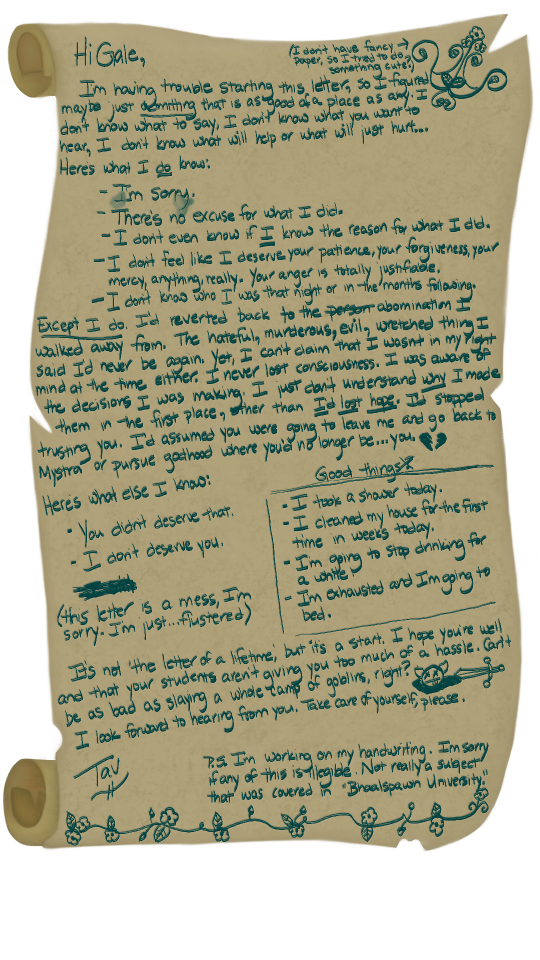 Hi Gale,
(I don't have fancy →
paper, so I tried to do
something cute?)
I'm having trouble starting this letter, so I figured
maybe just admitting that is as good of a place as any. I
don't know what to say, I don't know what you want to
hear, I don't know what will help or what will just hurt...
Here's what I do know:
- I'm sorry.
- There's no excuse for what I did.
- I don't even know if I know the reason for what I did.
- I don't feel like I deserve your patience, your forgiveness, your
mercy, anything, really. Your anger is totally justifiable.
- I don't know who I was that night or in the months following.
Except I do. I'd reverted back to the person abomination I
walked away from. The hateful, murderous, evil, wretched thing I
said I'd never be again. Yet, I can't claim that I wasn't in my right
mind at the time either. I never lost consciousness. I was aware of
the decisions I was making. I just don't understand why I made
them in the first place, other than I'd lost hope. I'd stopped
trusting you. I'd assumed you were going to leave me and go back to
Mystra or pursue godhood where you'd no longer be... you.
Here's what else I know:
- You didn't deserve that.
- I don't deserve you.
(this letter is a mess, I'm
sorry. I'm just... flustered)
Good things?
- I took a shower today.
- I cleaned my house for the first
time in weeks today.
- I'm going to stop drinking for
a while.
- I'm exhausted and I'm going to
bed.
It's not 'the letter of a lifetime,' but it's a start. I hope you're well
and that your students aren't giving you too much of a hassle. Can't
be as bad as slaying a whole camp of goblins, right?
I look forward to hearing from you. Take care of yourself, please.
Tav
P.S. I'm working on my handwriting. I'm sorry
if any of this is illegible. Not really a subject
that was covered in "Bhaalspawn University."